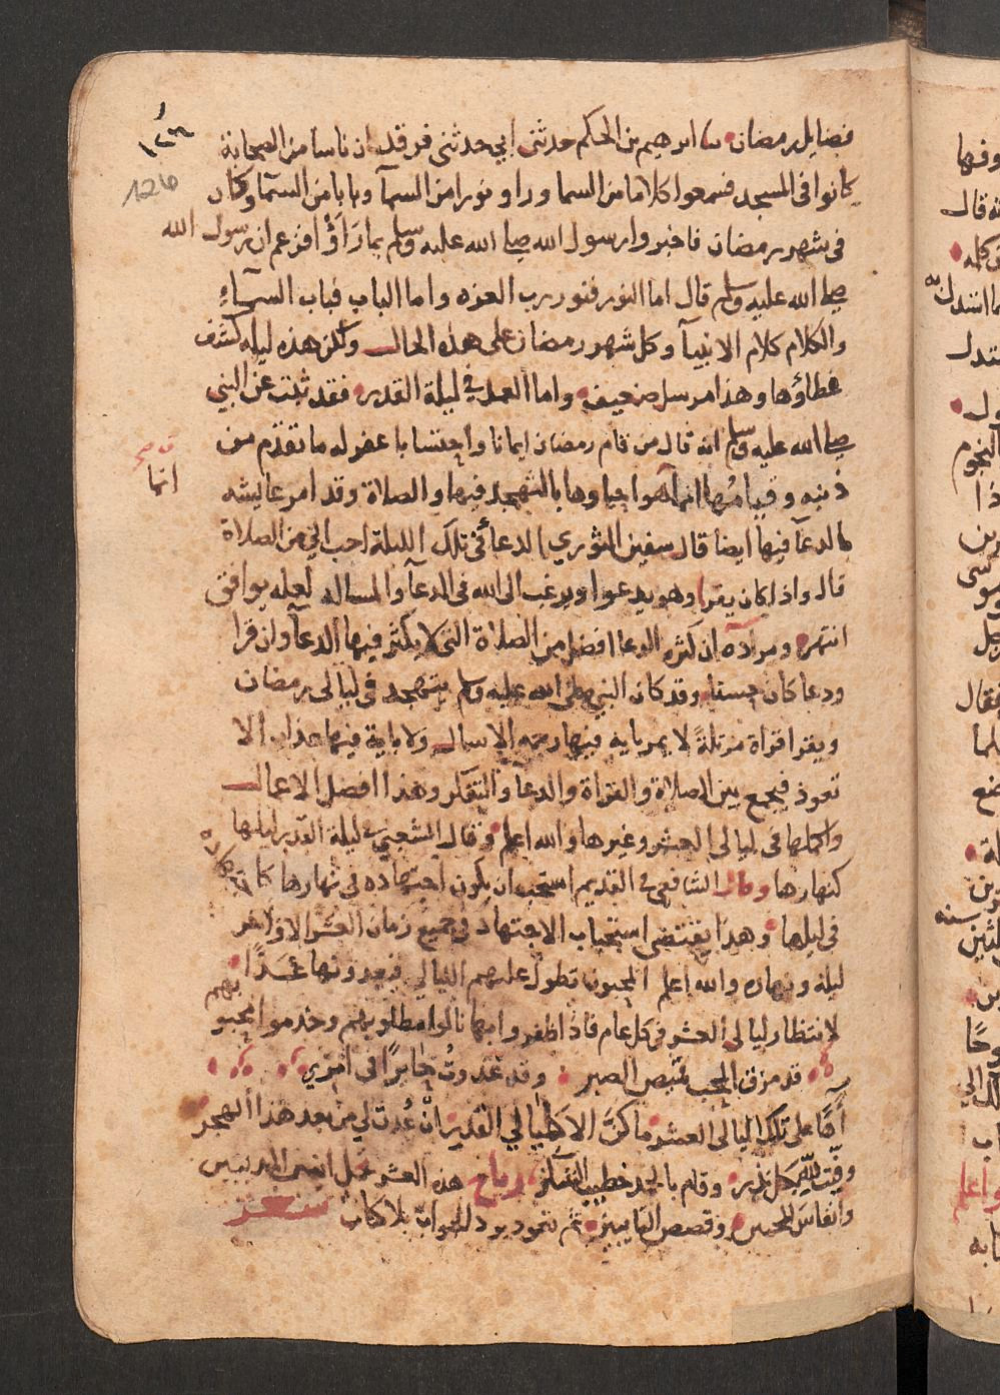 ١٢٦
126
فضايل رمضان ثنا ابرهيم بن الحكم حدثني ابي حدثني فرقد ان ناسا من الصحابة
كانوا في المسجد فسمعوا كلاما من السما وراو نورا من السمآ وبابا من السما وكان
في شهر رمضان فاخبروا رسول الله صلى الله عليه وسلم بما رَاَوْا فزعم ان رسول الله
صلى الله عليه وسلم قال اما النور فنور رب العزه واما الباب فباب السمآءِ
والكلام كلام الانبيآ وكل شهر رمضان على هذه الحال ولكن هذه ليله كشف
غطاؤها وهذا مرسل ضعيف واما العمل في ليلة القدر فقد ثبت عن النبي
صلى الله عليه وسلم انه قال من قام رمضان ايمانا واحتسابا غفر له ما تقدّم من
ذنبه وقيامُها انما هوا حياوها بالتهجد فيها والصلاة وقد امر عايشه
انما
بالدعآ فيها ايضا قال سفين الثوري الدعآ في تلك الليلة احب الي من الصلاة
قال واذا كان يقرا وهو يدعوا ويرغب الى الله في الدعآ والمساله لعله يوافق
انتهى ومراده ان كثرة الدعا افضل من الصلاة التي لا يكثر فيها الدعآ وان قرا
ودعا كان حسنا وقد كان النبي صلى الله عليه وسلم يتهجد في ليالي رمضان
ويقرا قراة مرتلةً لا يمر باية فيها رحمه الا سال ولا باية فيها عذاب الا
تعوذ فيجمع بين الصلاة والقراة والدعآ والتفكر وهذا افضل الاعمال
واكملها في ليالي العشر وغيرها والله اعلم وقال الشعبي في ليلة القدر ليلها
كنهارها وقال الشافعي في القديم استحب ان يكون اجتهاده في نهارها كاجتهاده
في ليلها وهذا يقتضي استحباب الاجتهاد في جميع زمان العشر الاواخر
ليله ونهاره والله اعلم المحبون تطول عليهم الليالي فيعدونها عَدًّا
لانتظار ليالي العشر في كل عام فاذا ظفروا بها نالوا مطلوبهم وخدموا محبوبهم
قد مزق الحب قميص الصبر وقد غدوتُ حايرًا في امري
آهًا على تلك الليالي العشر ما كنَّ الا كليالي القدر انْ عُدت لي من بعد هذا الهجر
وفّيت لله بكل نذر وقام بالحمد خطيب الشكر رياح هذه العشر تحمل انين المذنبين
وانفاس المحبين وقصص التايبين ثم تعود برد الجواب بلا كتاب شعر